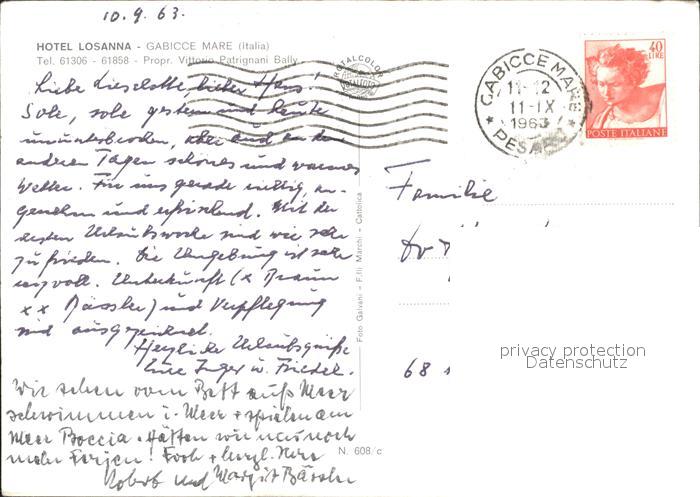 10.9.63.
HOTEL LOSANNA - GABICCE MARE (Italia)
Tel. 61306 - 61858 - Propr. Vittorio Patrignani Bally
Liebe Lieselotte, lieber Hans!
Sole, sole gestern und heute
ununterbrochen, aber auch an den
anderen Tagen schönes und warmes
Wetter. Für uns gerade richtig, an-
genehm und erfrischend. Mit der
ersten Urlaubswoche sind wir sehr
zufrieden. Die Umgebung ist sehr
reizvoll. Unterkunft (x Braun
xx Bässler) und Verpflegung
sind ausgezeichnet.
Herzliche Urlaubsgrüße
Eure Inger u. Friedel.
Wir sehen vom Bett aufs Meer
schwimmen i. Meer + spielen am
Meer Boccia. Hätten wir nur noch
mehr Ferien! Froh + herzl. Ihre
Robert und Margit Bässler
ROTALCOLOR
ROTALFOTO
Foto Galvani - F.lli Marchi - Cattolica
N. 608/c
GABICCE MARE
11-12
11-IX
1963
PESARO
40
LIRE
POSTE ITALIANE
Familie
68
privacy protection
Datenschutz